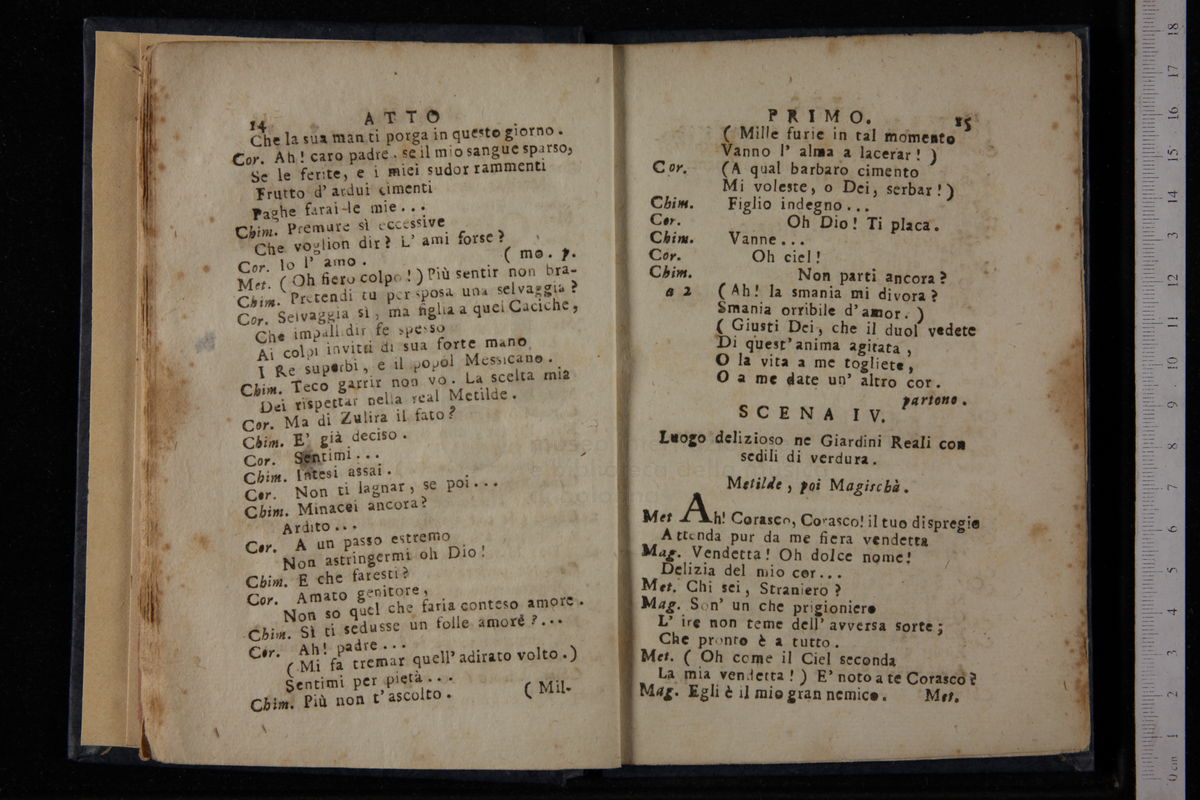 14 ATTO
Che la sua man ti porga in questo giorno.
Cor. Ah! caro padre, se il mio sangue sparso,
Se le ferite, e i miei sudor rammenti
Frutto d' ardui cimenti
Paghe farai le mie...
Chim. Premure sì eccessive
Che voglion dir? L' ami forse?
Cor. Io l' amo. ( mo. p.
Met. (Oh fiero colpo!) Più sentir non bra-
Chim. Pretendi tu per sposa una selvaggia?
Cor. Selvaggia sì, ma figlia a quel Caciche,
Che impallidir fe spesso
Ai colpi invitti di sua forte mano
I Re superbi, e il popol Messicano.
Chim. Teco garrir non vo. La scelta mia
Dei rispettar nella real Metilde.
Cor. Ma di Zulira il fato?
Chim. E' già deciso.
Cor. Sentimi...
Chim. Intesi assai.
Cor. Non ti lagnar, se poi...
Chim. Minacci ancora?
Ardito...
Cor. A un passo estremo
Non astringermi oh Dio!
Chim. E che faresti?
Cor. Amato genitore,
Non so quel che faria conteso amore.
Chim. Sì ti sedusse un folle amore?...
Cor. Ah! padre...
(Mi fa tremar quell' adirato volto.)
Sentimi per pietà...
Chim. Più non t' ascolto. ( Mil-
PRIMO. 15
( Mille furie in tal momento
Vanno l' alma a lacerar! )
Cor. (A qual barbaro cimento
Mi voleste, o Dei, serbar!)
Chim. Figlio indegno...
Cor. Oh Dio! Ti placa.
Chim. Vanne...
Cor. Oh ciel!
Chim. Non parti ancora?
a 2 (Ah! la smania mi divora?
Smania orribile d' amor. )
( Giusti Dei, che il duol vedete
Di quest' anima agitata,
O la vita a me togliete,
O a me date un' altro cor.
partono.
SCENA IV.
Luogo delizioso ne Giardini Reali con
sedili di verdura.
Metilde, poi Magischà.
Met Ah! Corasco, Corasco! il tuo dispregio
Attenda pur da me fiera vendetta
Mag. Vendetta! Oh dolce nome!
Delizia del mio cor...
Met. Chi sei, Straniero?
Mag. Son' un che prigioniero
L' ire non teme dell' avversa sorte;
Che pronto è a tutto.
Met. ( Oh come il Ciel seconda
La mia vendetta! ) E' noto a te Corasco?
Mag. Egli è il mio gran nemico. Met.